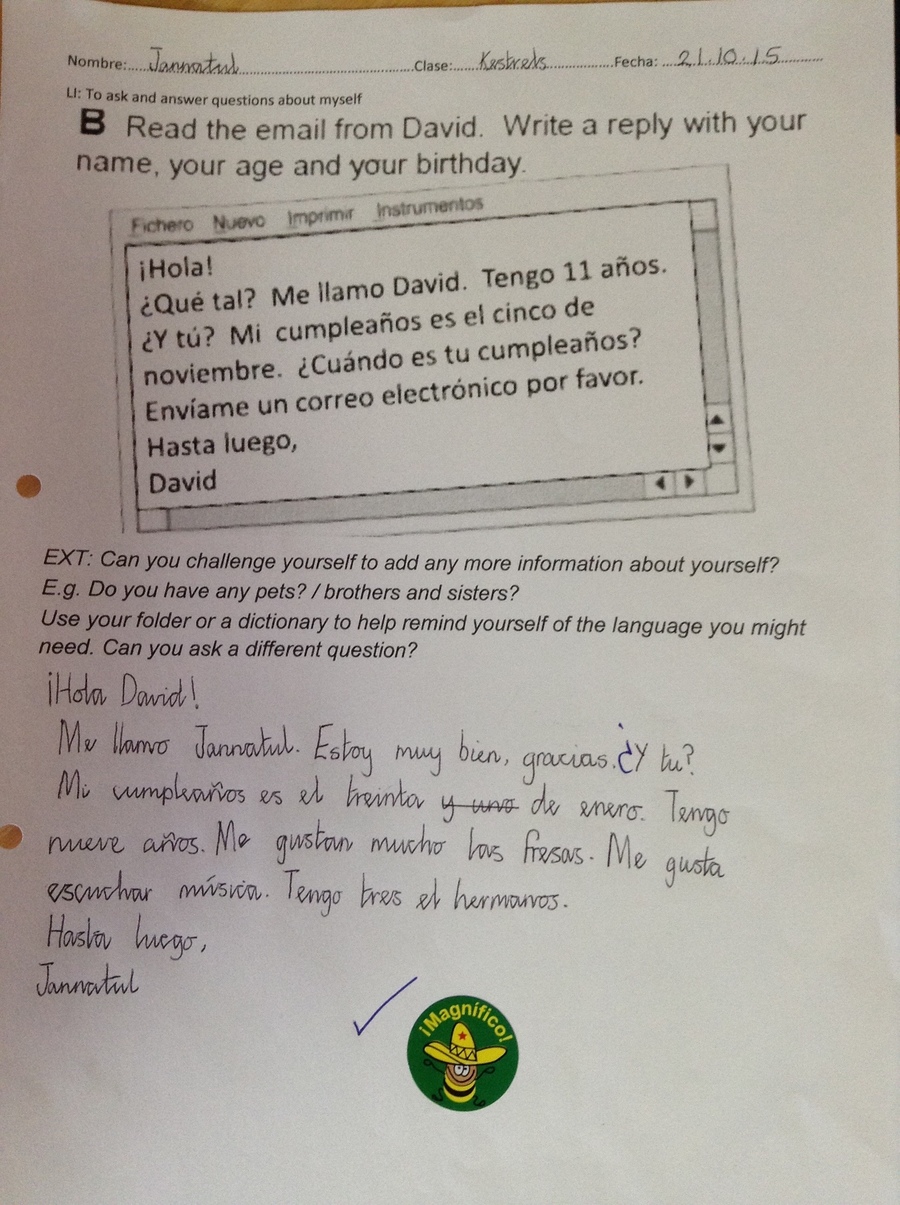 Nombre:.....Jannatul..........Clase:......Kestrels..........Fecha: ....21.10.15..........
LI: To ask and answer questions about myself
B Read the email from David. Write a reply with your
name, your age and your birthday.
Fichero Nuevo Imprimir Instrumentos
¡Hola!
¿Qué tal? Me llamo David. Tengo 11 años.
¿Y tú? Mi cumpleaños es el cinco de
noviembre. ¿Cuándo es tu cumpleaños?
Envíame un correo electrónico por favor.
Hasta luego,
David
EXT: Can you challenge yourself to add any more information about yourself?
E.g. Do you have any pets? / brothers and sisters?
Use your folder or a dictionary to help remind yourself of the language you might
need. Can you ask a different question?
¡Hola David!
Me llamo Jannatul. Estoy muy bien, gracias. ¿Y tu?
Mi cumpleaños es el treinta y uno de enero. Tengo
nueve años. Me gustan mucho las fresas. Me gusta
escuchar música. Tengo tres el hermanos.
Hasta luego,
Jannatul
¡Magnífico!